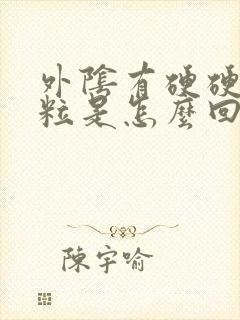 外陰有硬硬
粒是怎麼回
陳宇喻